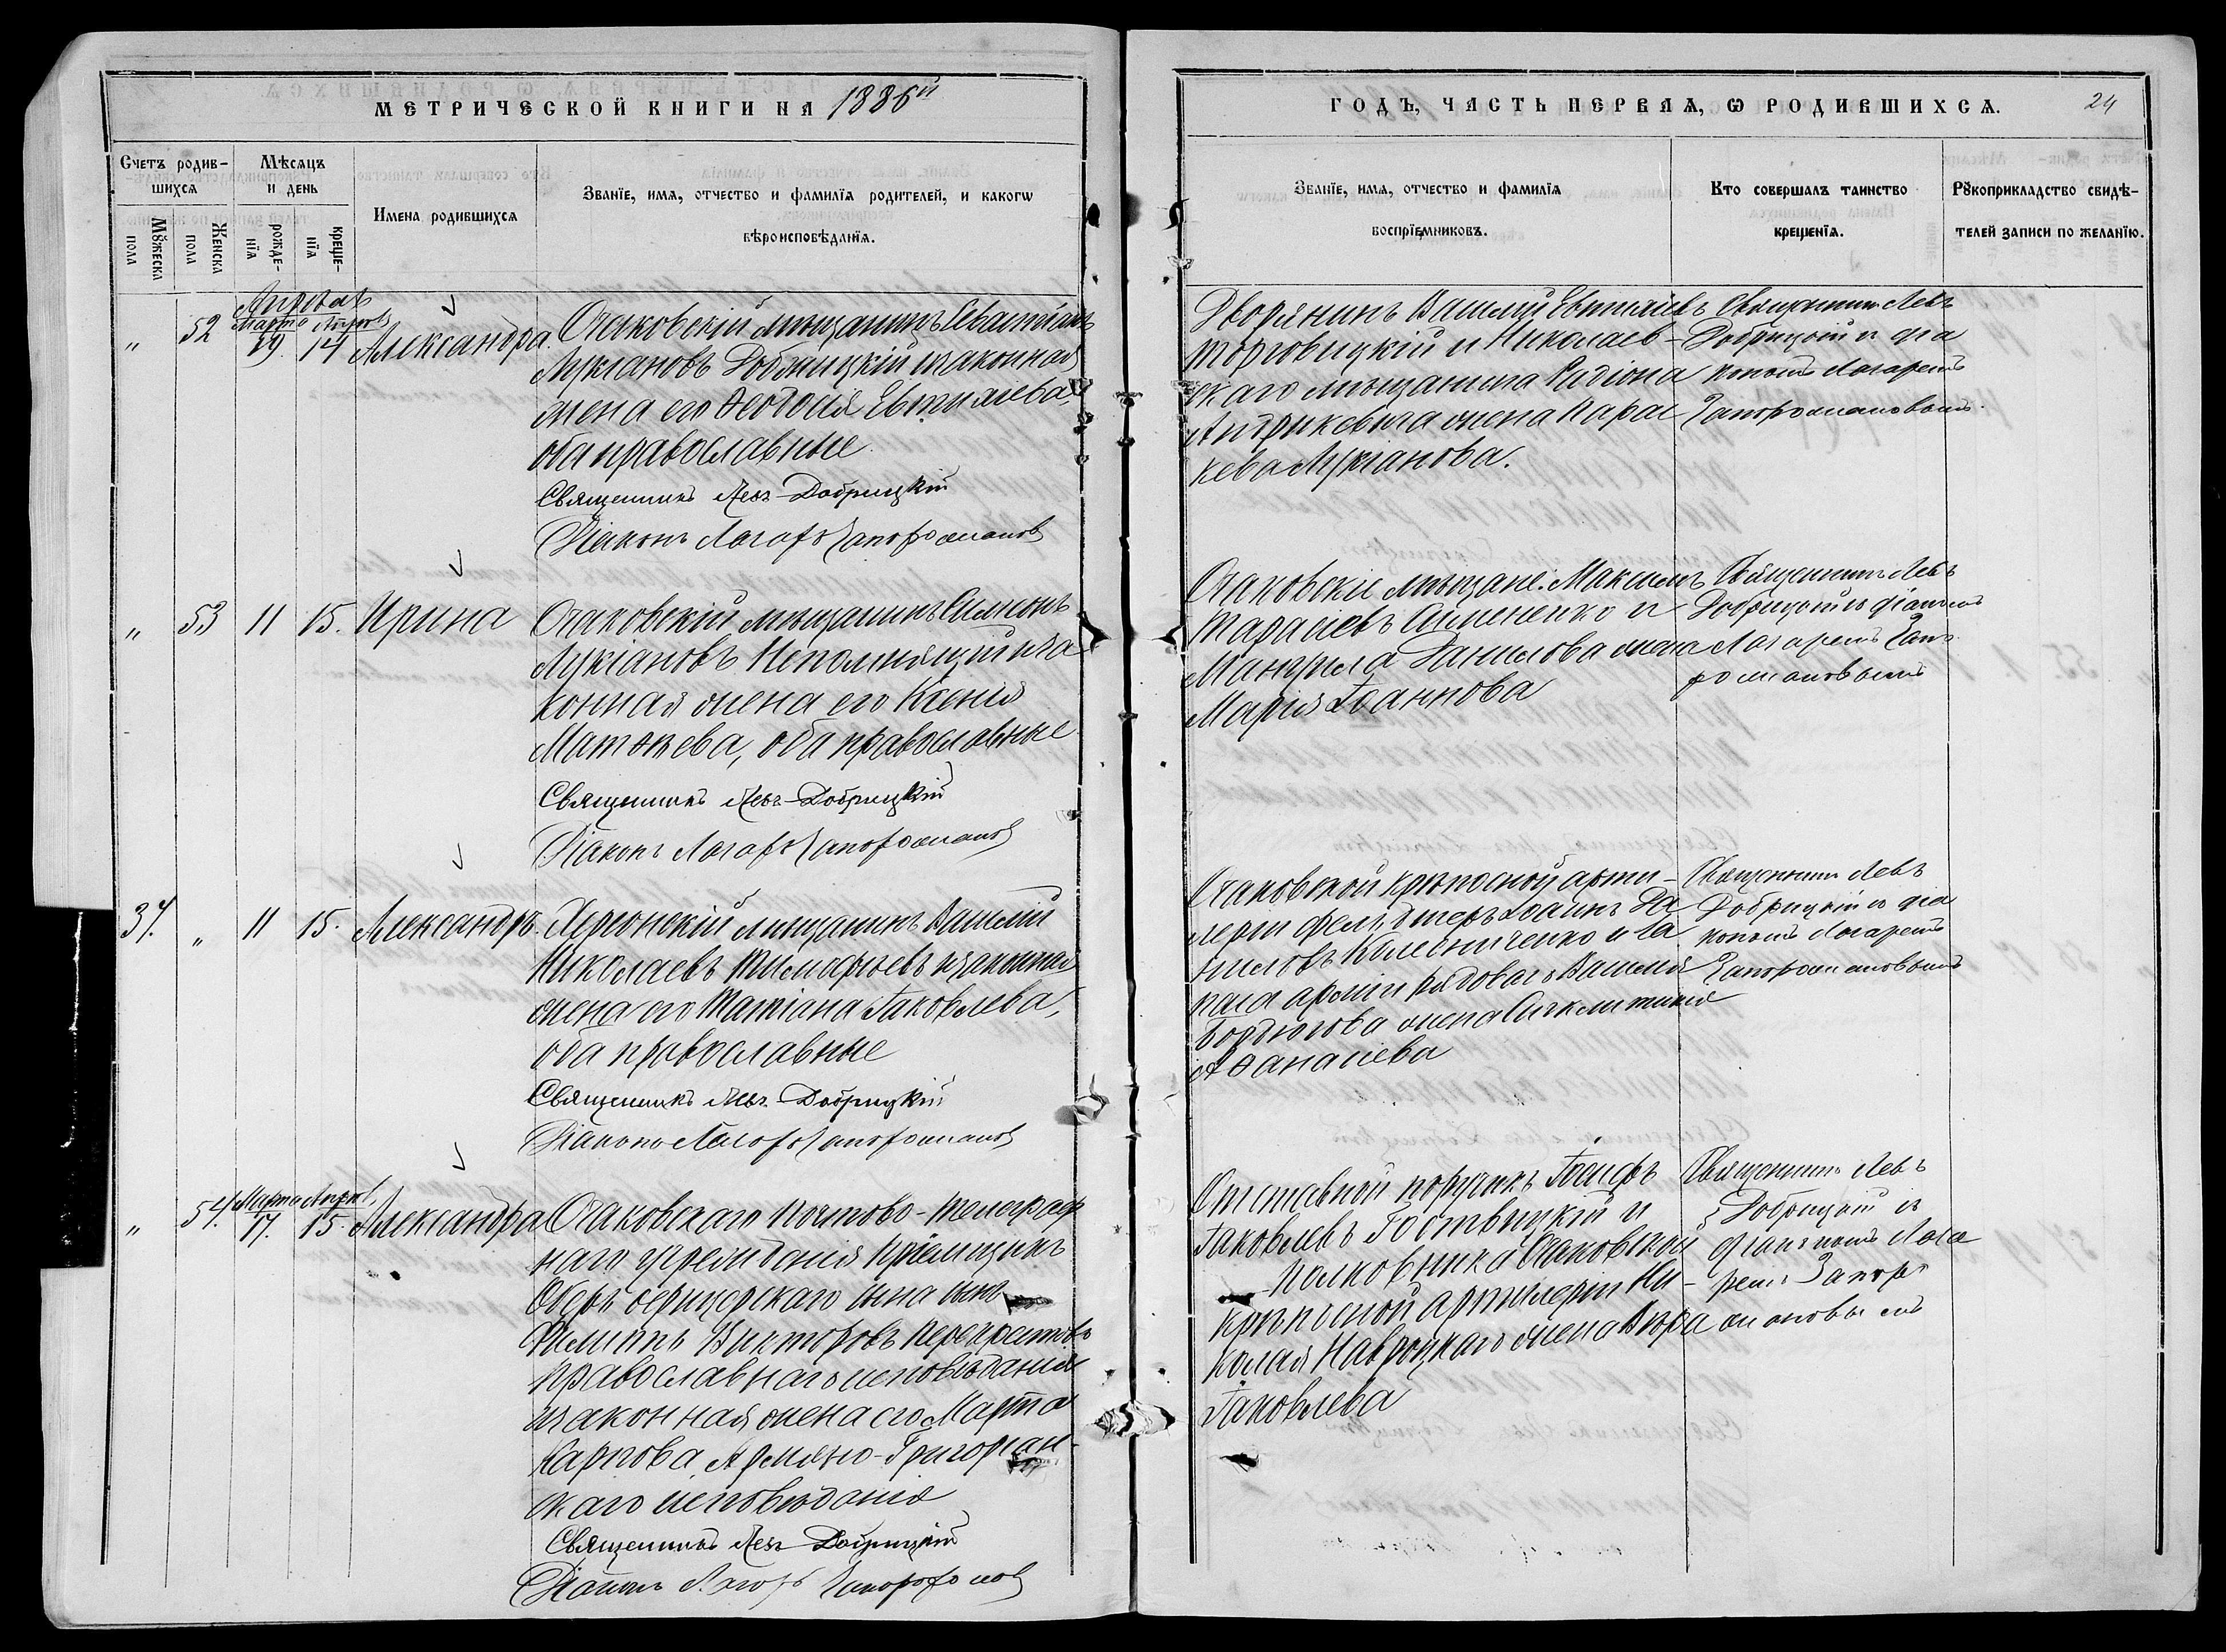 МЕТРИЧЕСКОЙ КНИГИ НА 1886й
Счетъ родив-
шихся
Мѣсяцъ
и день
Имена родившихся
Званїе, имя, отчество и фамилїя родителей, и какогѡ
вѣроисповѣданїя.
Мꙋжеска
пола
Женска
пола
рожде-
нїя
креще-
нїя
Апрѣль
Марта
„ 52 29. 14 Александра Очаковскій мѣщанинъ Севастіанъ
Лукіановъ и законная
жена его Ѳеодосія Евтихіева,
оба православные
Священникъ Левъ Добрицкій
Діаконъ Лазарь Запорожановъ
„ 53 11 15. Ирина Очаковскій мѣщанинъ Симеонъ
Лукіановъ Непомнящій и за
конная жена его Ксенія
Матѳеева, оба православные
Священникъ Левъ Добрицкій
Діаконъ Лазарь Запорожановъ
37. „ 11 15. Александръ. Херсонскій мѣщанинъ Василій
Николаевъ и законная
жена его Татіана Іаковлева,
оба православные
Священникъ Левъ Добрицкій
Діаконъ Лазарь Запорожановъ
Марта
„ 54. 17. 15. Александра Очаковскаго Почтово-телеграф
наго учрежденія Пріемщикъ
Оберъ офицерскаго сына сынъ
Филиппъ Викторовъ
православнаго исповѣданія
и законная жена его Марта
Карпова, Армяно-Григоріан-
скаго исповѣданія
Священникъ Левъ Добрицкій
Діаконъ Лазарь
ГОДЪ, ЧАСТЬ ПЕРВАЯ, Ѡ РОДИВШИХСЯ. 24
Званїе, имя, отчество и фамилїя
воспрїемниковъ.
Кто совершалъ таинство
крещенїя.
Рꙋкоприкладство свидѣ-
телей записи по желанїю.
Дворянинъ Василій Евтихіевъ
Торговицкій и Николаев-
скаго мѣщанина Радіона
Андрикевича жена Парас
кева Лукіанова.
Священникъ Левъ
Добрицкій и діа
кономъ Лазаремъ
Запорожановымъ.
Очаковскіе мѣщане: Максимъ
Тарасіевъ Симененко и
Данилова жена
Марія Іоаннова
Священникъ Левъ
Добрицкій и діакономъ
Лазаремъ Запо
рожановымъ
Очаковской крѣпосной арти-
леріи фельдшеръ Іоаннъ Да
ниловъ Колесниченко и За
паса арміи рядоваго Василія
Бордюгова жена Сигклитикія
Аѳанасіева
Священникъ Левъ
Добрицкій и діа
кономъ Лазаремъ
Запорожановымъ
Отставной поручикъ Іосифъ
Іаковлевъ Гоствицкій и
Полковника Очаковской
крѣпосной Артилеріи Ни-
колая Навроцкаго жена Вѣра
Іаковлева
Священникъ Левъ
Добрицкій и
діакономъ Лаза
ремъ Запоро
жановымъ